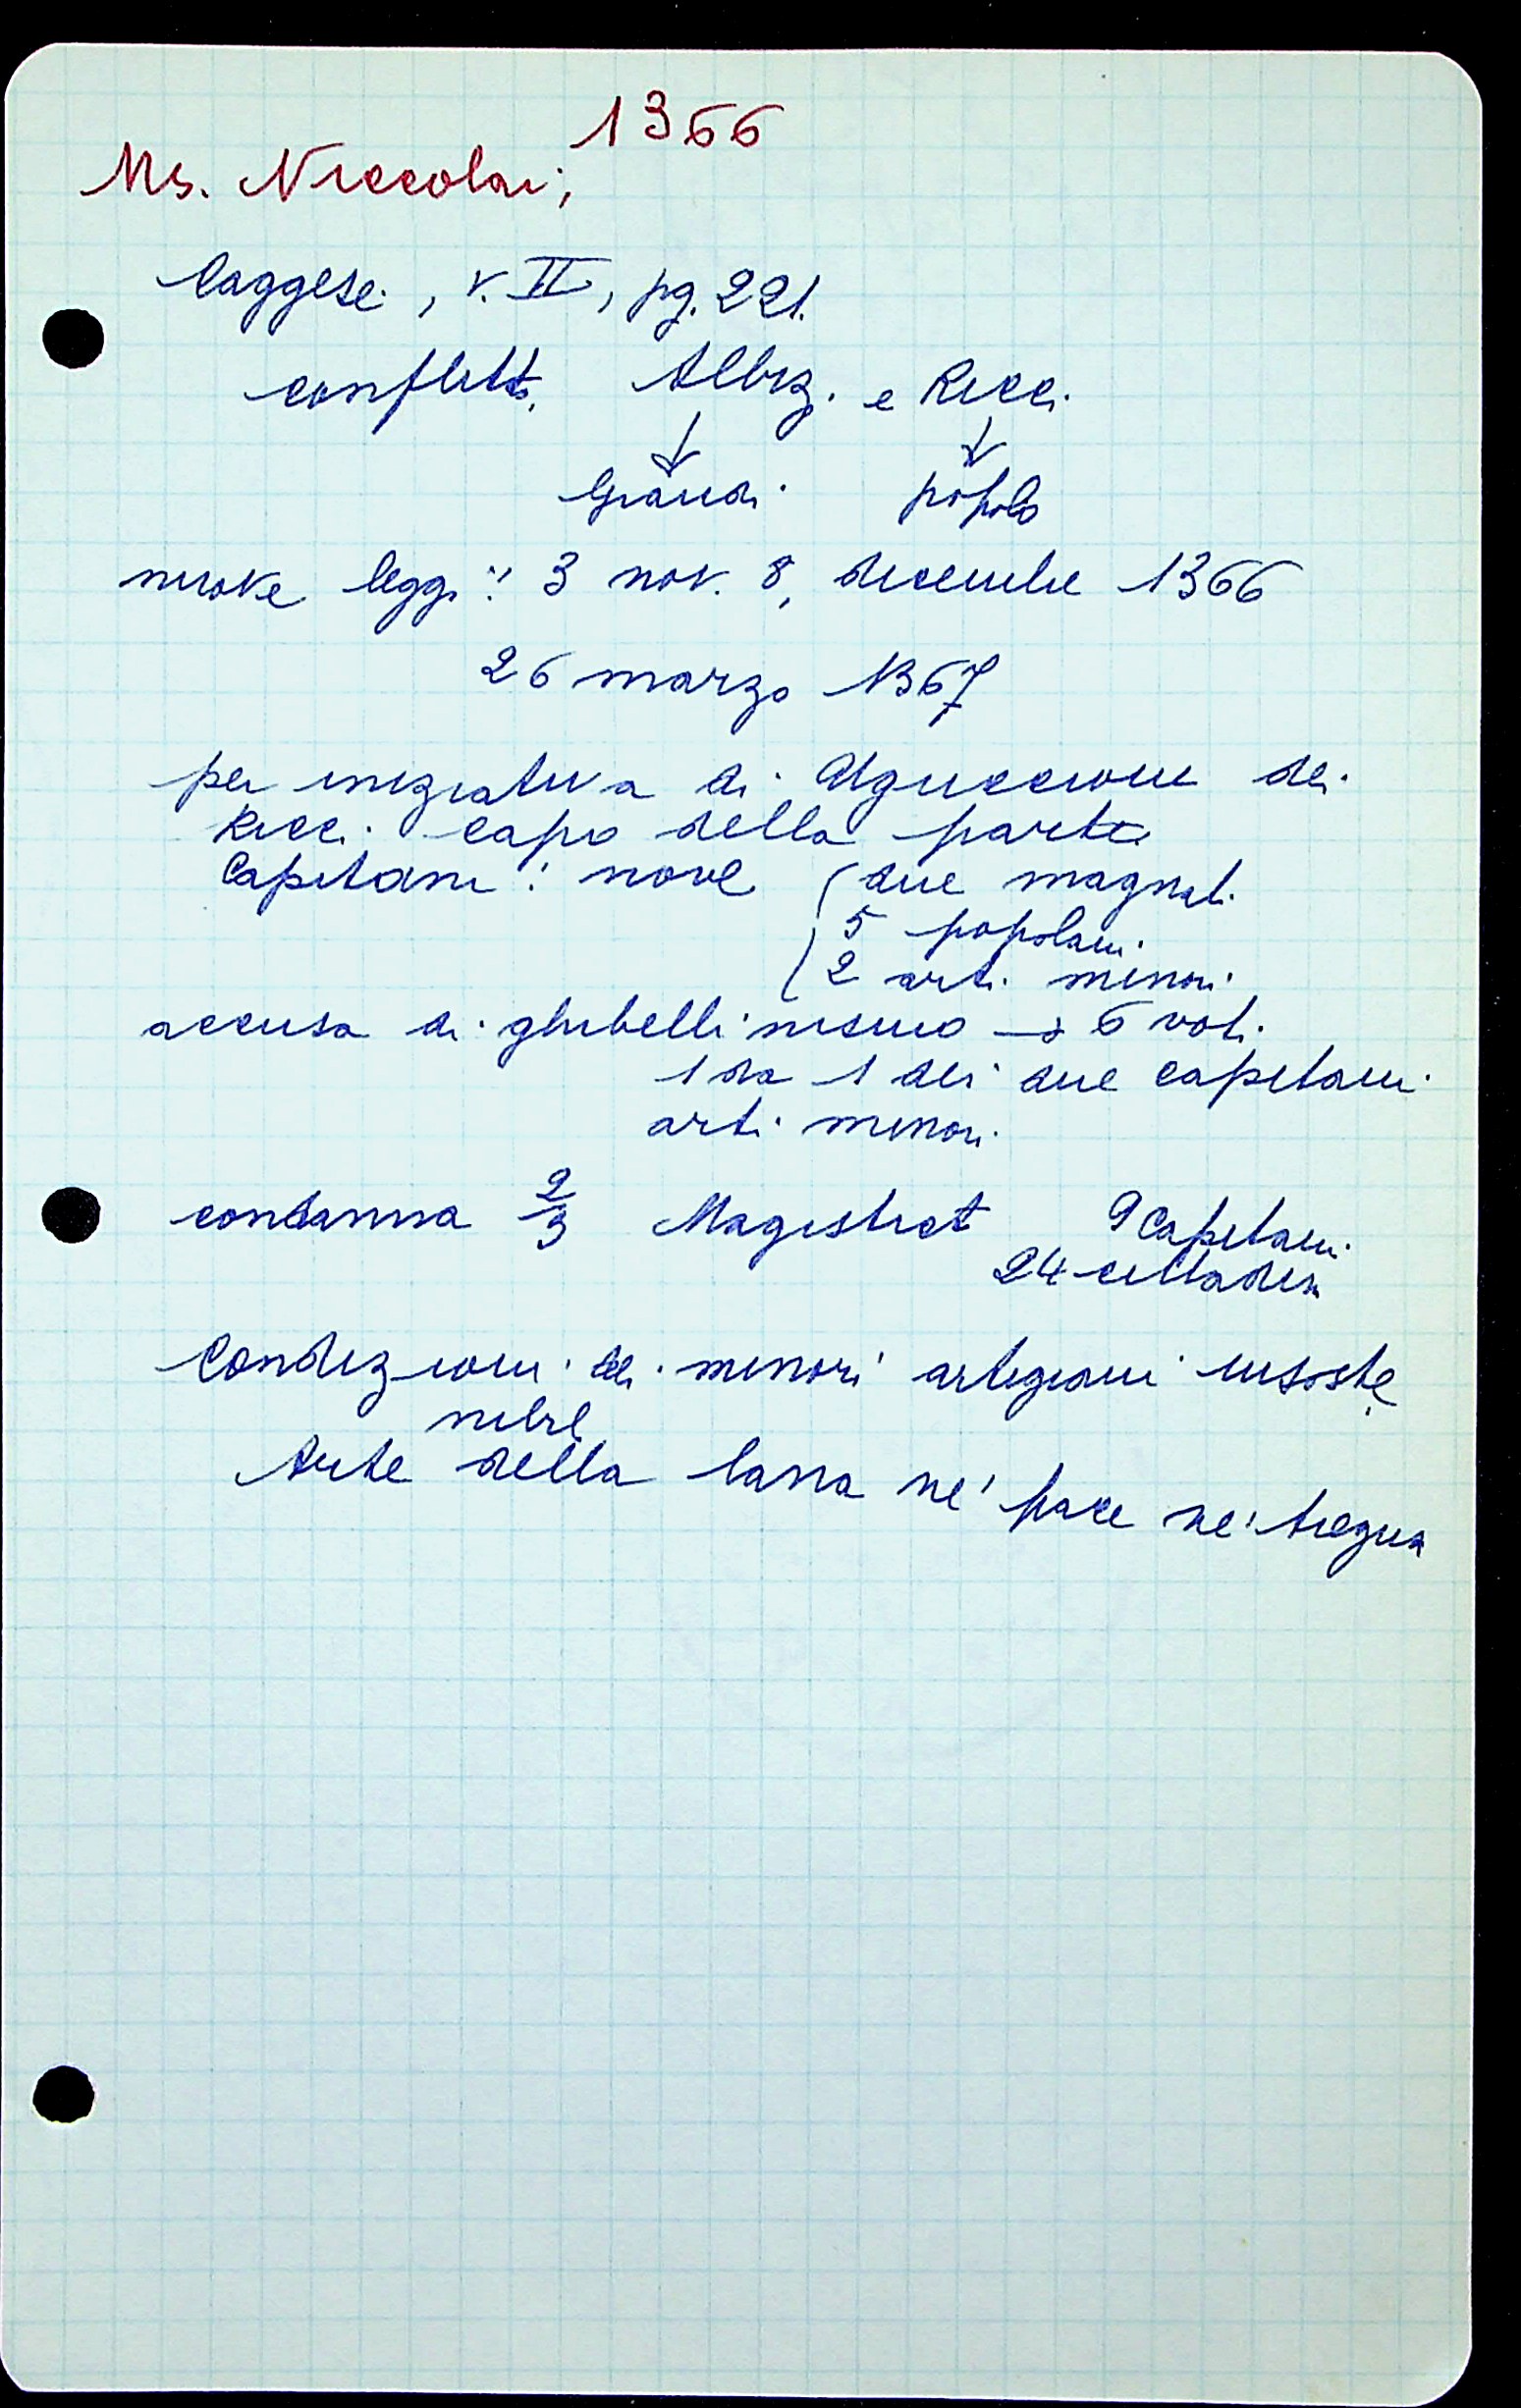 1366
Ms. Niccolai;
Caggese, v. II, pg. 221.
conflitto, Albiz. e Ricci
↓ ↓
Grandi popolo
nuove leggi: 3 nov. 8, dicembre 1366
26 marzo 1367
per iniziativa di Uguccione dei
Ricci capo della parte
Capitani: nove (due magnati
5 popolani
2 arti minori
accusa di ghibellinismo → 6 voti
1 da 1 dei due capitani
arti minori
condanna 2/3 Magistrat 9 Capitani
24 cittadini
Condizioni dei minori artigiani insoste
nibile
Arte della lana ne' pace ne' tregua